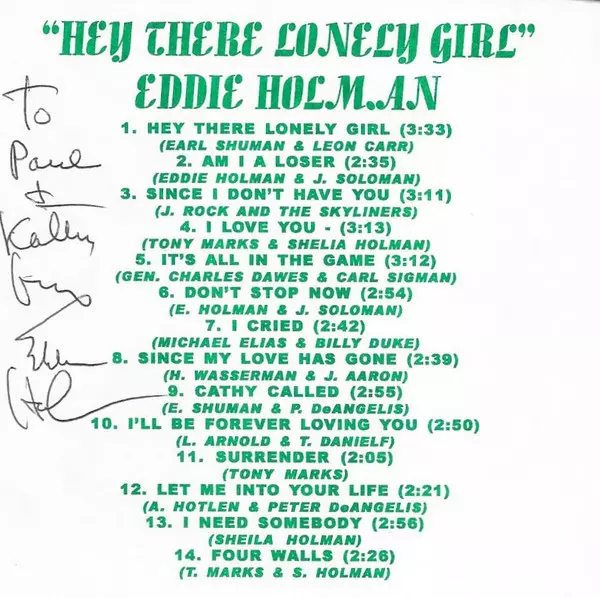 "HEY THERE LONELY GIRL"
EDDIE HOLM..AN
1. HEY THERE LONELY GIRL (3:33)
(EARL SHUMAN & LEON CARR)
2. AM I A LOSER (2:35)
(EDDIE HOLMAN & J. SOLOMAN)
3. SINCE I DON'T HAVE YOU (3:11)
(J. ROCK AND THE SKYLINERS)
4. I LOVE YOU - (3:13)
(TONY MARKS & SHELIA HOLMAN)
5. IT'S ALL IN THE GAME (3:12)
(GEN. CHARLES DAWES & CARL SIGMAN)
6. DON'T STOP NOW (2:54)
(E. HOLMAN & J. SOLOMAN)
7. I CRIED (2:42)
(MICHAEL ELIAS & BILLY DUKE)
8. SINCE MY LOVE HAS GONE (2:39)
(H. WASSERMAN & J. AARON)
9. CATHY CALLED (2:55)
(E. SHUMAN & P. DeANGELIS)
10. I'LL BE FOREVER LOVING YOU (2:50)
(L. ARNOLD & T. DANIELF)
11. SURRENDER (2:05)
(TONY MARKS)
12. LET ME INTO YOUR LIFE (2:21)
(A. HOTLEN & PETER DeANGELIS)
13. I NEED SOMEBODY (2:56)
(SHEILA HOLMAN)
14. FOUR WALLS (2:26)
(T. MARKS & S. HOLMAN)
To
Paul
&
Kathy
Eddie
Hol